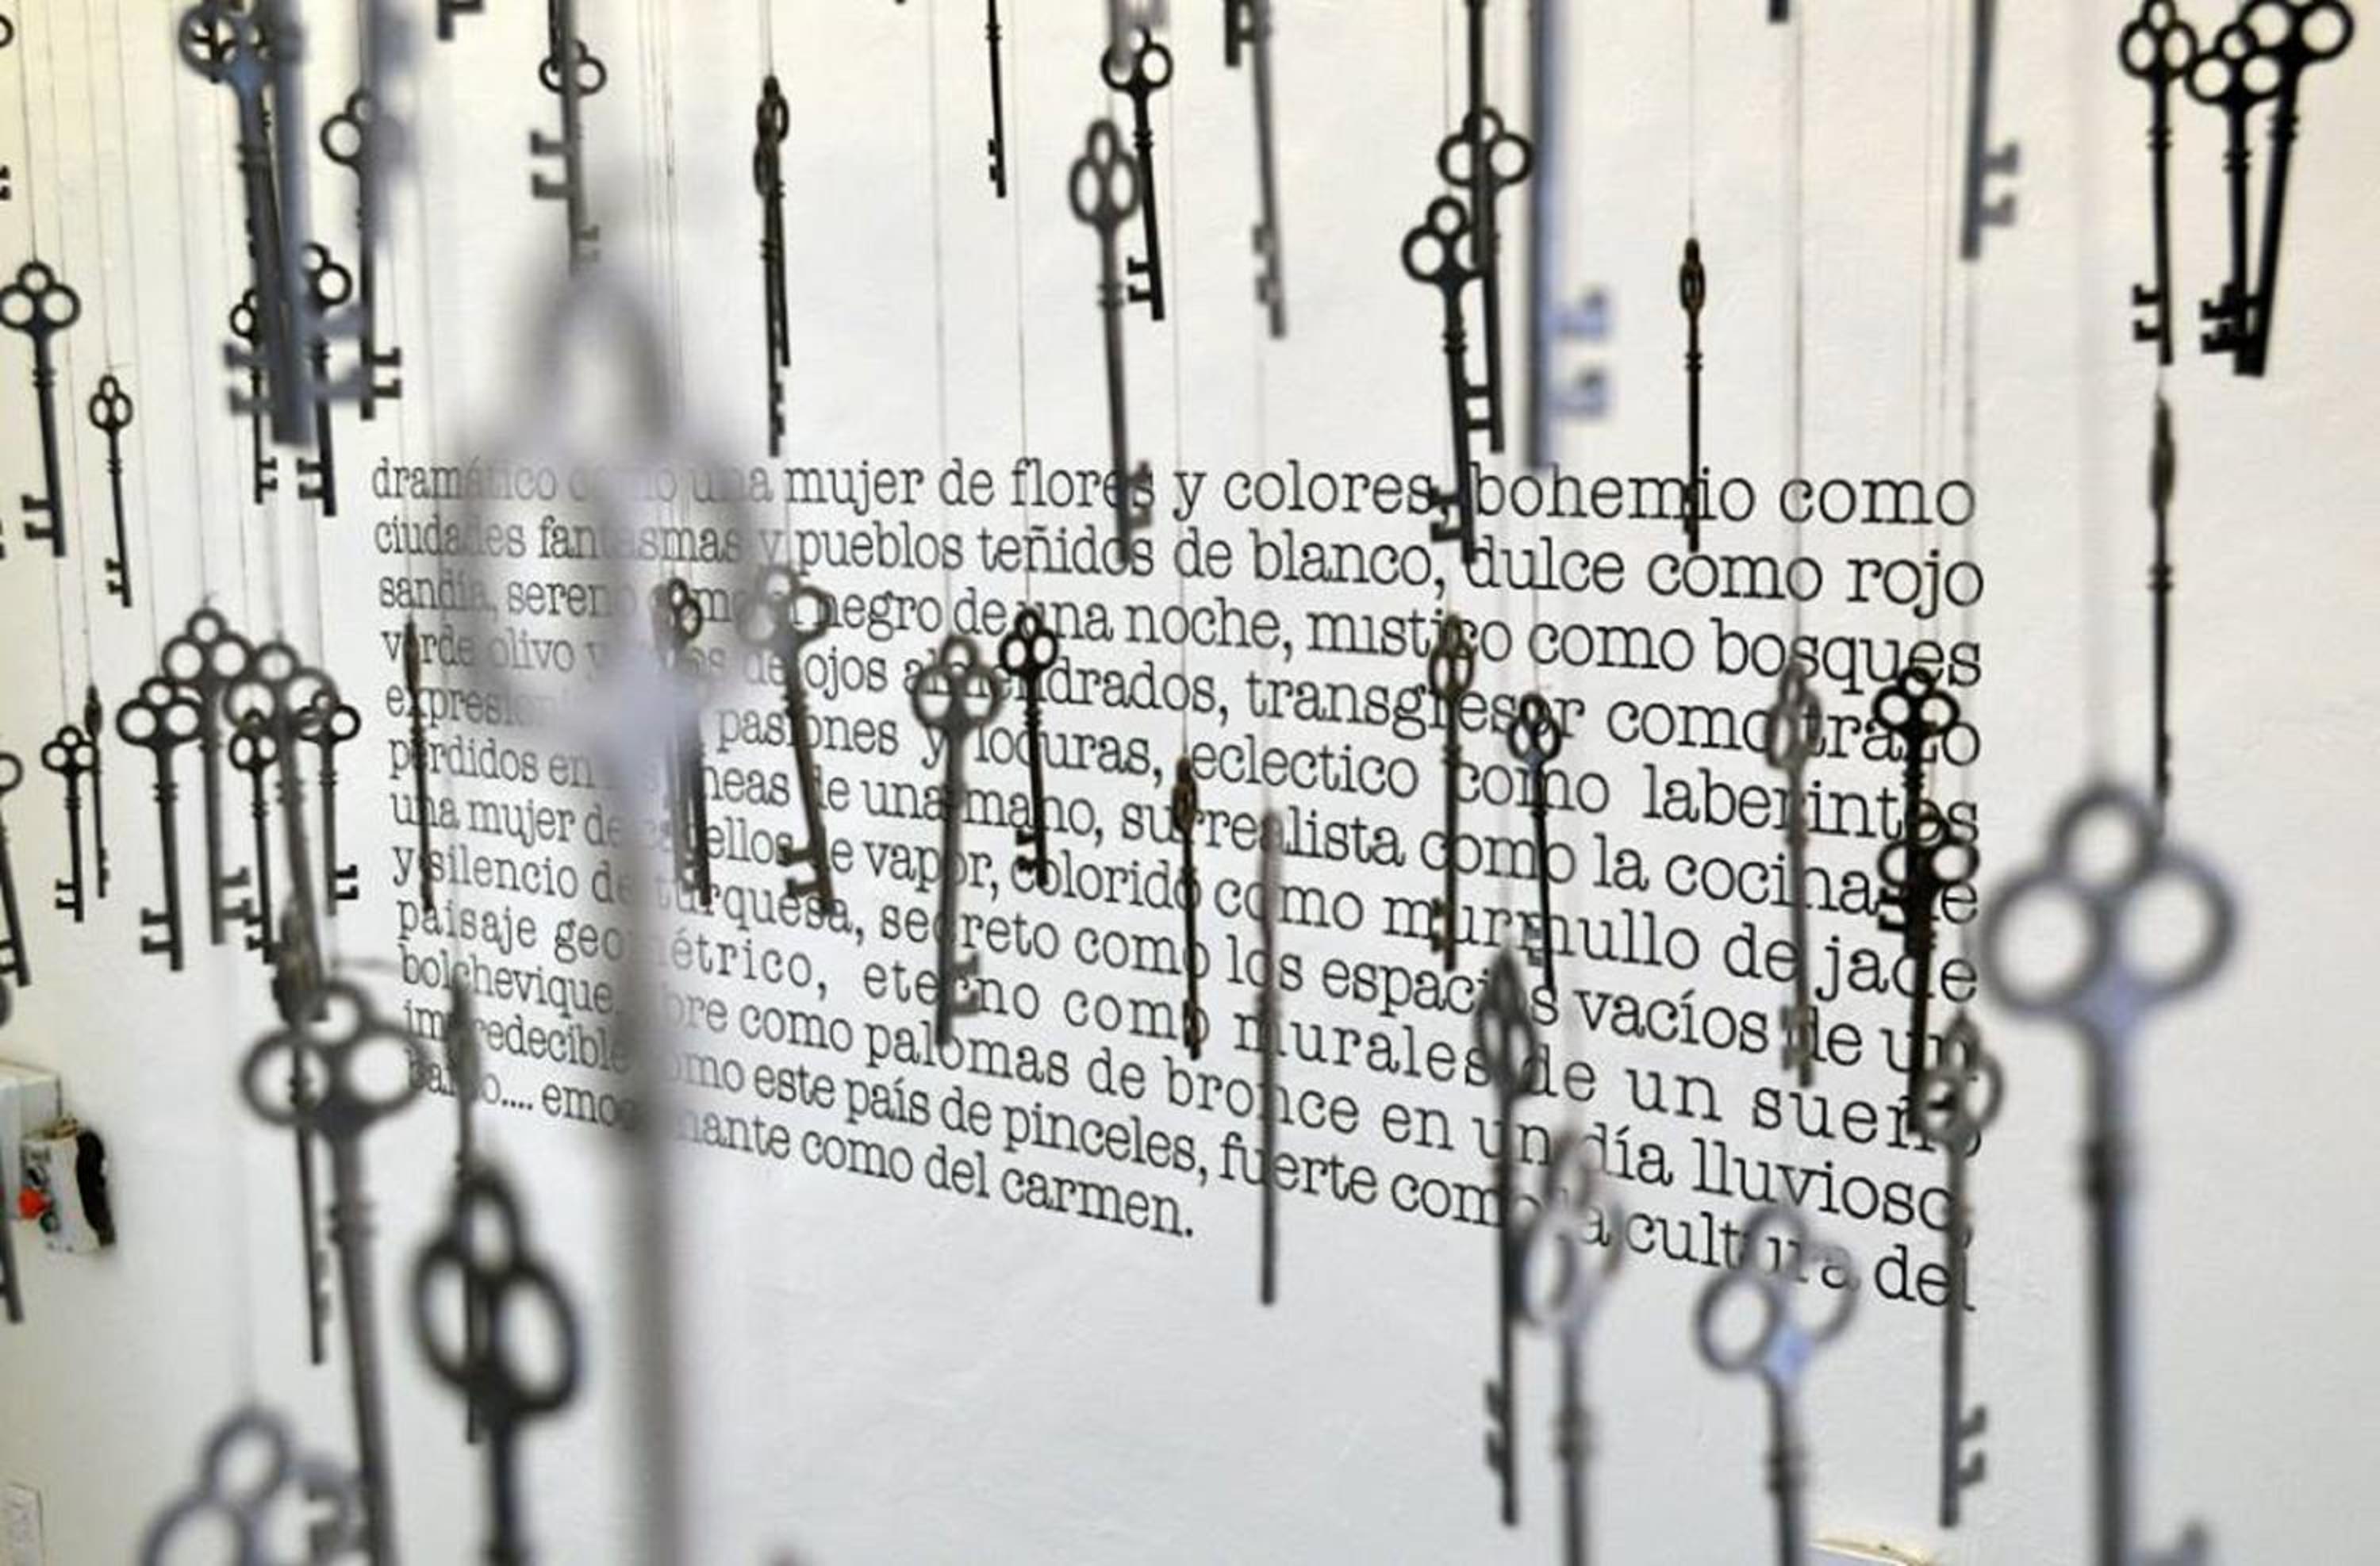 dramático como una mujer de flores y colores, bohemio como
ciudades fantasmas y pueblos teñidos de blanco, dulce como rojo
sandía, sereno como negro de una noche, mistico como bosques
verde olivo y de ojos almendrados, transgresor como trazo
expresionista pasiones y locuras, eclectico como laberintos
perdidos en líneas de una mano, surrealista como la cocina de
una mujer de cabellos de vapor, colorido como murmullo de jade
y silencio de turquesa, secreto como los espacios vacíos de un
paisaje geométrico, eterno como murales de un sueño
bolchevique, libre como palomas de bronce en un día lluvioso,
impredecible como este país de pinceles, fuerte como la cultura del
barrio.... emocionante como del carmen.